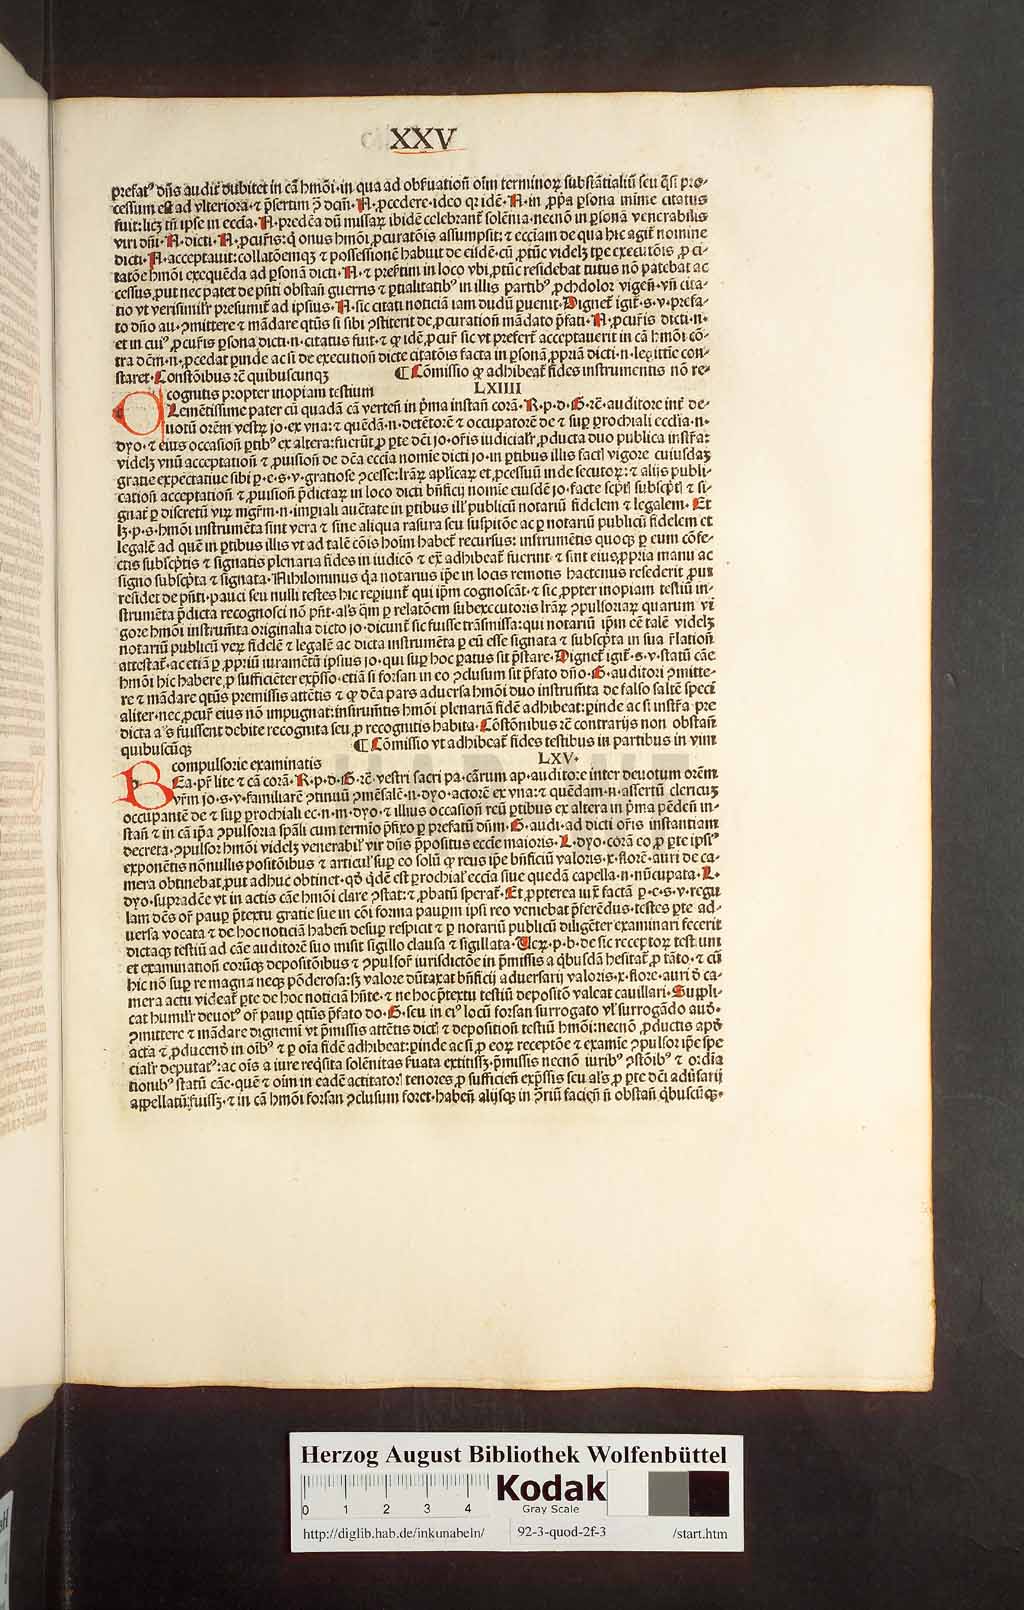 XXV
prefatꝰ dn̄s audit̃ dubitet in cā hm̄oi·in qua ad obſeruation̄ oīm terminoꝝ ſubſtātialiū ſeu q̄ſi pro-
ceſſum eſt ad vlteriora·⁊ p̄ſertim ꝯ dc̄m·N·ꝓcedere·ideo qꝛ idē·N·in ꝓp̄a ꝑſona mīme citatus
fuit:licꝫ tn̄ ipſe in eccīa·N·predc̄a dū miſſaꝝ ibidē celebrant̃ ſolēnia·necnō in ꝑſonā venerabilis
viri dn̄i·N·dicti·N·ꝓcur̄is:q̇ onus hm̄oi ꝓcuratōis aſſumpſit:⁊ eccīam de qua hic agit̃ nomine
dicti·N·acceptauit:collatōemqꝫ ⁊ poſſeſſionē habuit de eiſdē·cū ꝓtūc videlꝫ tp̄e executōis ꝓ ci-
tatōe hm̄oi exequēda ad ꝑſonā dicti·N·⁊ preſertim in loco vbi ꝓtūc reſidebat tutus nō patebat ac
ceſſus ꝓut nec patet de pn̄ti obſtan̄ guerris ⁊ ꝑtialitatibꝰ in illis partibꝰ ꝓchdolor vigen̄·vn̄ cita-
tio vt veriſimilr̄ preſumit̃ ad ipſius·N·ſic citati noticiā iam dudū puenit·Dignet̃ igit̃·s·v·prefa-
to dn̄o au·ꝯmittere ⁊ mādare qtūs ſi ſibi ꝯſtiterit de ꝓcuration̄ mādato p̄fati·N·ꝓcur̄is dicti·n·
et in cuiꝰ ꝓcur̄is ꝑſona dicti·n·citatus fuit·⁊ ꝙ idē ꝓcur̄ ſic vt prefert̃ acceptauerit in cā hm̄oi cō-
tra dc̄m·n·ꝓcedat ꝑinde ac ſi de execution̄ dicte citatōis facta in ꝑſonā ꝓpriā dicti·n·legittie con-
ſtaret·Conſtōibus rc̄ quibuſcunqꝫ ¶ Cōmiſſio ꝙ adhibeat̃ fides inſtrumentis nō re-
cognitis propter inopiam teſtium LXIIII
Clemētiſſime pater cū quadā cā verten̄ in p̄ma inſtan̄ corā·R·p·d·G·rc̄·auditore int̃ de-
uotū or̄em veſtrꝫ jo·ex vna:⁊ quēdā·n·detētorē ⁊ occupatorē de ⁊ ſuꝑ ꝑrochiali ecclīa·n·
dyo·⁊ eius occaſion̄ ꝑtibꝰ ex altera:fuerūt ꝓ ꝑte dc̄i jo·or̄is iudicialr̄ ꝓducta duo publica inſtr̄a:
videlꝫ vnū acceptation̄ ⁊ ꝓuiſion̄ de dc̄a eccīa nomīe dicti jo·in ꝑtibus illis facti vigore cuiuſdaꝫ
gratie expectatiue ſibi ꝑ·e·s·v·gratioſe ꝯceſſe:lr̄aꝝ aplicaꝝ et ꝓceſſuū inde ſecutoꝝ:⁊ alijs publi-
cation̄ acceptation̄ ⁊ ꝓuiſion̄ p̄dictaꝝ in loco dicti bn̄ficij nomīe eiuſdē jo·facte ſcp̄ti ſubſcp̄ti ⁊ ſi-
gnat̃ ꝑ diſcretū virꝫ mgr̄m·n·imꝑiali auc̄tate in ꝑtibus illꝭ publicū notariū fidelem ⁊ legalem·Et
lꝫ·p·s·hm̄oi inſtrumēta ſint vera ⁊ ſine aliqua raſura ſeu ſuſpitōe ac ꝑ notariū publicū fidelem et
legalē ad quē in ꝑtibus illis vt ad talē cōis hoīm habet̃ recurſus: inſtrumētis quoqꝫ ꝑ eum cōfe-
ctis ſubſcp̄tis ⁊ ſignatis plenaria fides in iudicō ⁊ ex̄ adhibeat̃ fuerint·⁊ ſint eius ꝓpria manu ac
ſigno ſubſcp̄ta ⁊ ſignata·Nihilominus q̄a notarius ip̄e in locis remotis hactenus reſederit ꝓut
reſidet de pn̄ti·pauci ſeu nulli teſtes hic reꝑiunt̃ qui ip̄m cognoſcāt·⁊ ſic ꝓpter inopiam teſtiū in-
ſtrumēta p̄dicta recognoſci nō pn̄t·alꝭs q̄m ꝑ relatōem ſubexecutoris lr̄aꝝ ꝯpulſoriaꝝ quarum vi
gore hm̄oi inſtrum̄ta originalia dicto jo·dicunt̃ ſic fuiſſe trāſmiſſa:qui notariū ip̄m eē talē videlꝫ
notariū publicū veꝝ fidelē ⁊ legalē ac dicta inſtrumēta ꝑ eū eſſe ſignata ⁊ ſubſcp̄ta in ſua r̄lation̄
atteſtat̃·ac etiā ꝑ ꝓpriū iuramētū ipſius jo·qui ſuꝑ hoc paratus ſit p̄ſtare·Dignet̃ igit̃·s·v·ſtatū cāe
hm̄oi hic habere ꝑ ſufficiēter exp̄ſſo·etiā ſi forſan in eo ꝯcluſum ſit p̄fato dn̄o·G·auditori ꝯmitte-
re ⁊ mādare qtūs premiſſis attētis ⁊ ꝙ dc̄a pars aduerſa hm̄oi duo inſtrum̄ta de falſo ſaltē ſpeci
aliter·nec ꝓcur̄ eius nō impugnat:inſtrum̄tis hm̄oi plenariā fidē adhibeat:ꝑinde ac ſi inſtr̄a pre
dicta alꝭs fuiſſent debite recognita ſeu ꝓ recognitis habita·Conſtōnibus rc̄ contrarijs non obſtan̄
quibuſcūqꝫ ¶ Cōmiſſio vt adhibeat̃ fides teſtibus in partibus in vim
compulſorie examinatis LXV·
Bea·pr̄ lite ⁊ cā corā·R·p·d·G·rc̄·veſtri ſacri pa·cārum ap·auditore inter deuotum or̄em
vr̄m jo·s·v·familiarē ꝯtinuū ꝯmēſalē·n·dyo·actorē ex vna:⁊ quēdam·n·aſſertū clericuꝫ
occupantē de ⁊ ſuꝑ ꝑrochiali ec·n·m·dyo·⁊ illius occaſion̄ reū ꝑtibus ex altera in p̄ma pēden̄ in-
ſtan̄ ⁊ in cā ip̄a ꝯpulſoria ſpāli cum termīo p̄fixo ꝑ prefatū dn̄m·G·audi·ad dicti or̄is inſtantiam
decreta·ꝯpulſor hm̄oi videlꝫ venerabilꝭ vir dn̄s p̄poſitus eccīe maioris·L·dyo·corā eo ꝓ ꝑte ipſiꝰ
exponētis nōnullis poſitōibus ⁊ articulꝭ ſuꝑ eo ſolū ꝙ reus ip̄e bn̄ficiū valoris·x·florē·auri de ca-
mera obtinebat ꝓut adhuc obtinet·qd̄ q̄dē eſt ꝑrochialꝭ eccīa ſiue quedā capella·n·nūcupata·L·
dyo·ſupradēe vt in actis cāe hm̄oi clare ꝯſtat:⁊ ꝓbatū ſperat̃·Et ꝓpterea iux̄ factā ꝑ·e·s·v·regu
lam dc̄s or̄ paup̄ p̄textu gratie ſue in cōi forma pauꝑm ipſi reo veniebat p̄ferēdus·teſtes ꝑte ad-
uerſa vocata ⁊ de hoc noticiā haben̄ deſuꝑ reſpicit ⁊ ꝑ notariū publicū diligēter examinari fecerit
dictaqꝫ teſtiū ad cāe auditorē ſuo miſit ſigillo clauſa ⁊ ſigillata·Veꝝ·p·b·de ſic receptoꝝ teſtium
et examination̄ eorūqꝫ depoſitōibus ⁊ ꝯpulſor̄ iurisdictōe in p̄miſſis a q̄buſdā heſitat̃ ꝓ tāto·⁊ cū
hic nō ſuꝑ re magna neqꝫ pōderoſa:ſꝫ valore dūtaxat bn̄ficij aduerſarij valoris·x·flore·auri ð ca-
mera actu videat̃ ꝑte de hoc noticiā hn̄te·⁊ ne hoc p̄textu teſtiū depoſitō valeat cauillari·Suppli-
cat humilr̄ deuotꝰ or̄ paup̄ qtūs p̄fato do·G·ſeu in eiꝰ locū forſan ſurrogato vl̓ ſurrogādo audō·
ꝯmittere ⁊ mādare dignemī vt p̄miſſis attētis dicti ⁊ depoſition̄ teſtiū hm̄oi:necnō ꝓductis apd̄
acta ⁊ ꝓducend̄ in oībꝰ ⁊ ꝑ oīa fidē adhibeat:ꝑinde ac ſi ꝓ eoꝝ receptōe ⁊ examīe ꝯpulſor ip̄e ſpe
cialr̄ deputatꝰ:ac oīs a iure req̄ſita ſolēnitas ſ̄uata extitiſſꝫ·p̄miſſis necnō iuribꝰ ꝯſtōibꝰ ⁊ ordīa
tionibꝰ ſtatū cāe·quē ⁊ oīm in eadē actitatoꝝ tenores ꝓ ſufficien̄ exp̄ſſis ſeu alꝭs ꝓ ꝑte dc̄i adūſarij
appellatū fuiſſꝫ·⁊ in cā hm̄oi forſan ꝯcluſum foret·haben̄ alijſqꝫ in ꝯriū facien̄ n̄ obſtan̄ q̄buſcūqꝫ·
Herzog August Bibliothek Wolfenbüttel
0 1 2 3 4 Kodak
Gray Scale
http://diglib.hab.de/inkunabeln/ 92-3-quod-2f-3 /start.htm